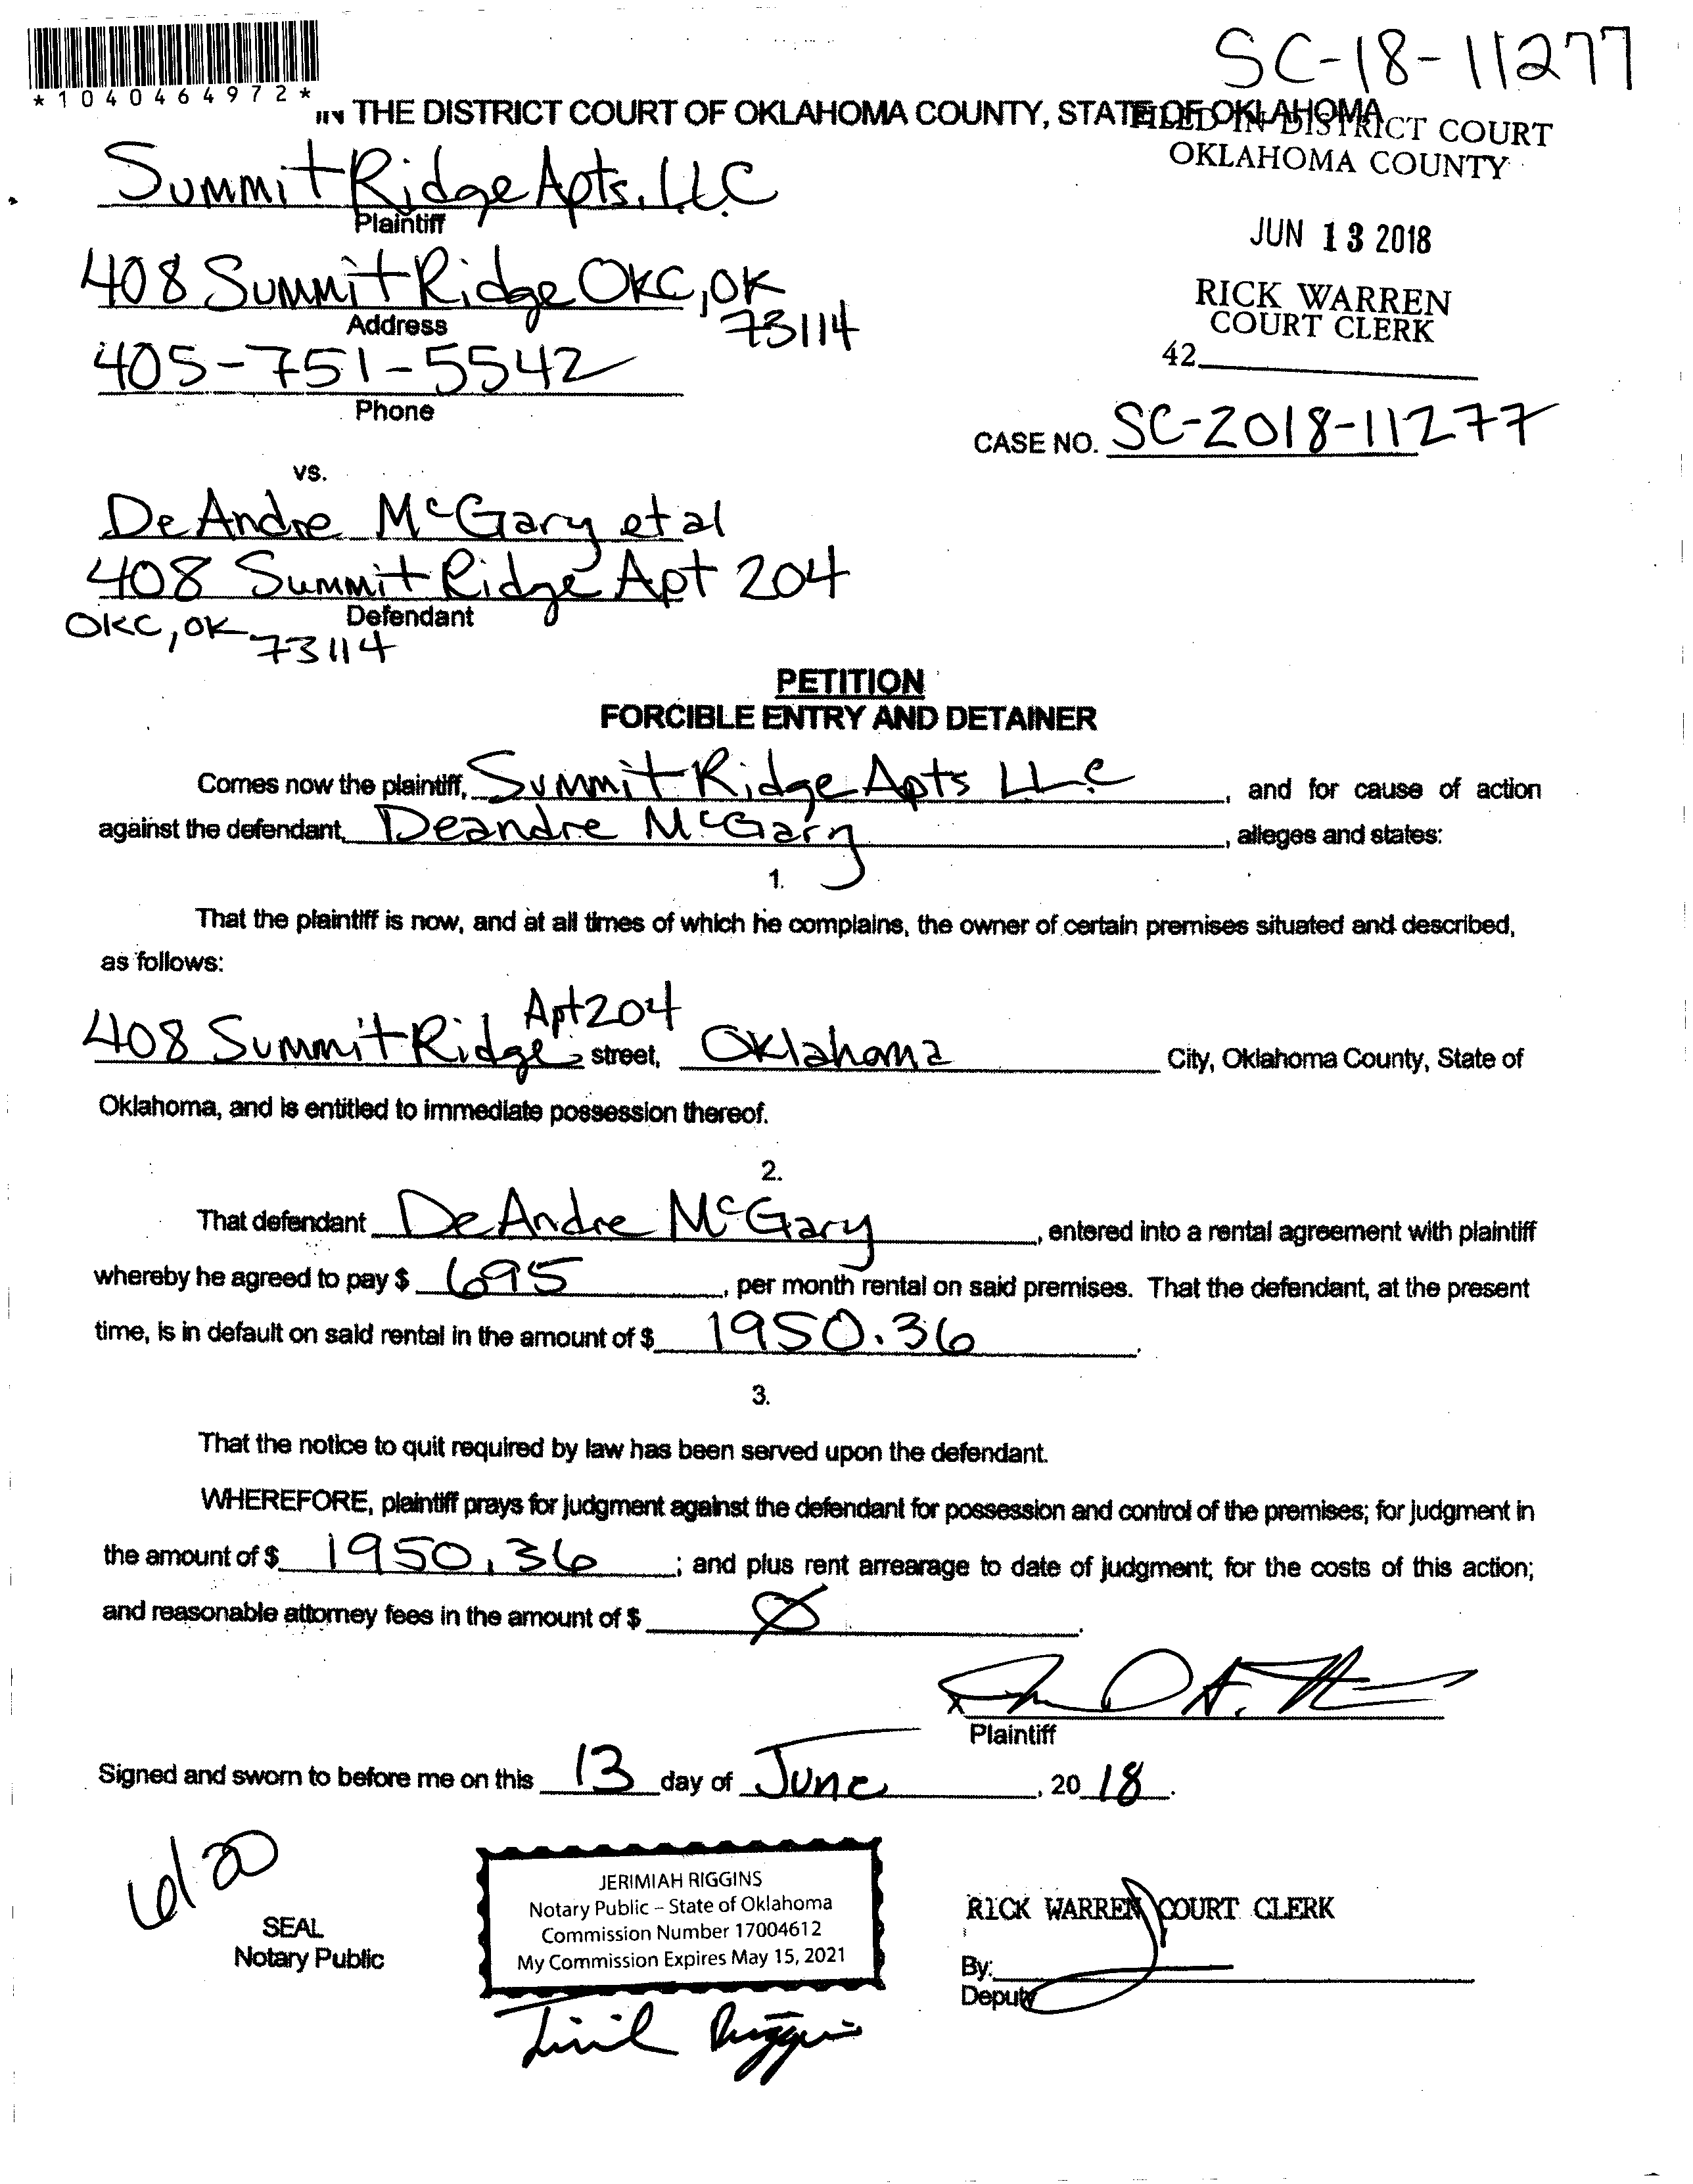 SC-18-11277
*1040464972*
IN THE DISTRICT COURT OF OKLAHOMA COUNTY, STATE OF OKLAHOMA
FILED IN DISTRICT COURT
OKLAHOMA COUNTY
Summit Ridge Apts, LLC
Plaintiff
JUN 13 2018
408 Summit Ridge OKC, OK
73114
Address
RICK WARREN
COURT CLERK
405-751-5542
42
Phone
CASE NO. SC-2018-11277
vs.
DeAndre McGary et al
408 Summit Ridge Apt 204
Defendant
OKC, OK 73114
PETITION
FORCIBLE ENTRY AND DETAINER
Comes now the plaintiff, Summit Ridge Apts LLC, and for cause of action
against the defendant, Deandre McGary, alleges and states:
1.
That the plaintiff is now, and at all times of which he complains, the owner of certain premises situated and described,
as follows:
Apt 204
408 Summit Ridge street, Oklahoma City, Oklahoma County, State of
Oklahoma, and is entitled to immediate possession thereof.
2.
That defendant DeAndre McGary, entered into a rental agreement with plaintiff
whereby he agreed to pay $ 695, per month rental on said premises. That the defendant, at the present
time, is in default on said rental in the amount of $ 1950.36.
3.
That the notice to quit required by law has been served upon the defendant.
WHEREFORE, plaintiff prays for judgment against the defendant for possession and control of the premises; for judgment in
the amount of $ 1950.36; and plus rent arrearage to date of judgment; for the costs of this action;
and reasonable attorney fees in the amount of $ Ø.
Plaintiff
Signed and sworn to before me on this 13 day of June, 2018.
6/20
SEAL
Notary Public
JERIMIAH RIGGINS
Notary Public – State of Oklahoma
Commission Number 17004612
My Commission Expires May 15, 2021
RICK WARREN COURT CLERK
By:
Deputy